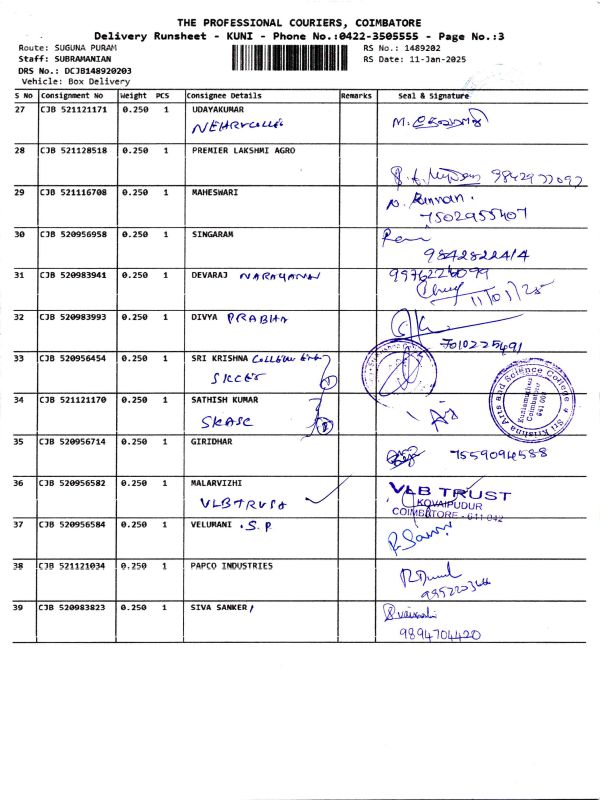 THE PROFESSIONAL COURIERS, COIMBATORE
Delivery Runsheet - KUNI - Phone No.:0422-3505555 - Page No.:3
Route: SUGUNA PURAM RS No.: 1489202
Staff: SUBRAMANIAN RS Date: 11-Jan-2025
DRS No.: DCJB148920203
Vehicle: Box Delivery
S No Consignment No Weight PCS Consignee Details Remarks Seal & Signature
27 CJB 521121171 0.250 1 UDAYAKUMAR
28 CJB 521128518 0.250 1 PREMIER LAKSHMI AGRO
29 CJB 521116708 0.250 1 MAHESWARI
7502955407
30 CJB 520956958 0.250 1 SINGARAM
9842822414
31 CJB 520983941 0.250 1 DEVARAJ NARAYANAN 9976226099
11/01/25
32 CJB 520983993 0.250 1 DIVYA PRABHA
7010225491
33 CJB 520956454 0.250 1 SRI KRISHNA COLLEGE
SKCET
34 CJB 521121170 0.250 1 SATHISH KUMAR
SKASC
Sri Krishna Arts and Science College
Kuniamuthur
Coimbatore
641 008
35 CJB 520956714 0.250 1 GIRIDHAR 7559094588
36 CJB 520956582 0.250 1 MALARVIZHI
VLB TRUST
VLB TRUST
KOVAIPUDUR
COIMBATORE - 641 042
37 CJB 520956584 0.250 1 VELUMANI . S.P
38 CJB 521121034 0.250 1 PAPCO INDUSTRIES
39 CJB 520983823 0.250 1 SIVA SANKER
9894704420